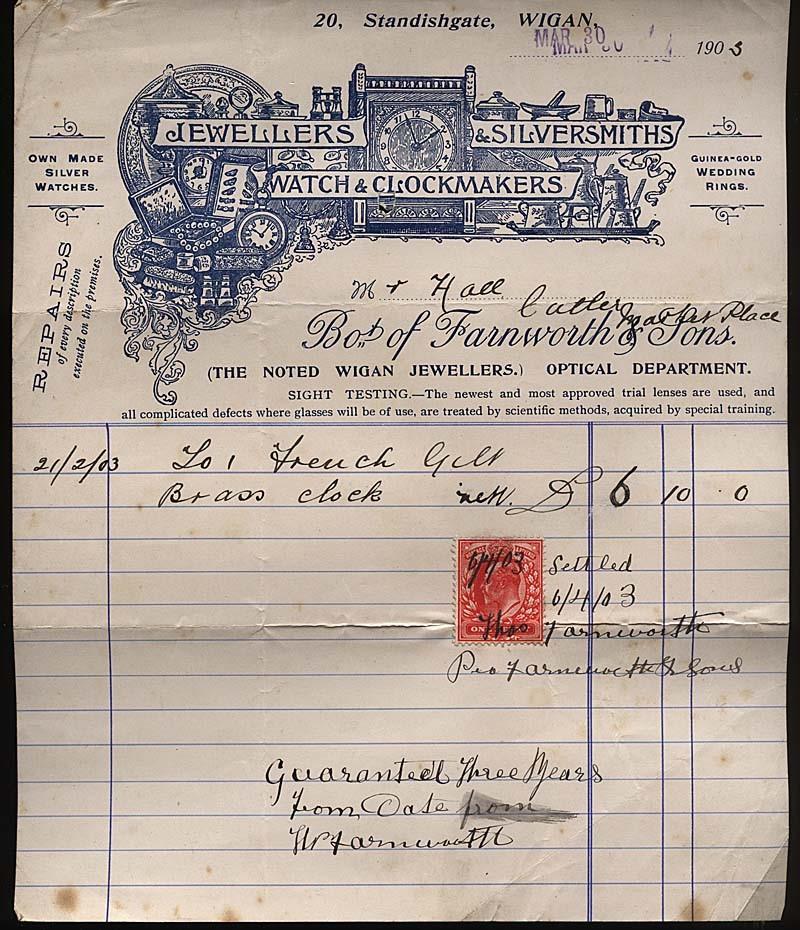 20, Standishgate, WIGAN,
MAR 30 1903
JEWELLERS & SILVERSMITHS
WATCH & CLOCKMAKERS
OWN MADE
SILVER
WATCHES.
GUINEA-GOLD
WEDDING
RINGS.
REPAIRS
of every description
executed on the premises.
Mr Hall Cutler
Market Place
Bot. of Farnworth & Sons.
(THE NOTED WIGAN JEWELLERS.) OPTICAL DEPARTMENT.
SIGHT TESTING.—The newest and most approved trial lenses are used, and
all complicated defects where glasses will be of use, are treated by scientific methods, acquired by special training.
21/2/03 To 1 French Gilt
Brass clock nett. £ 6 10 . 0
6/4/03 Settled
6/4/03
Thos Farnworth
Pro Farnworth & Sons
Guaranteed Three Years
from Date from
Farnworth